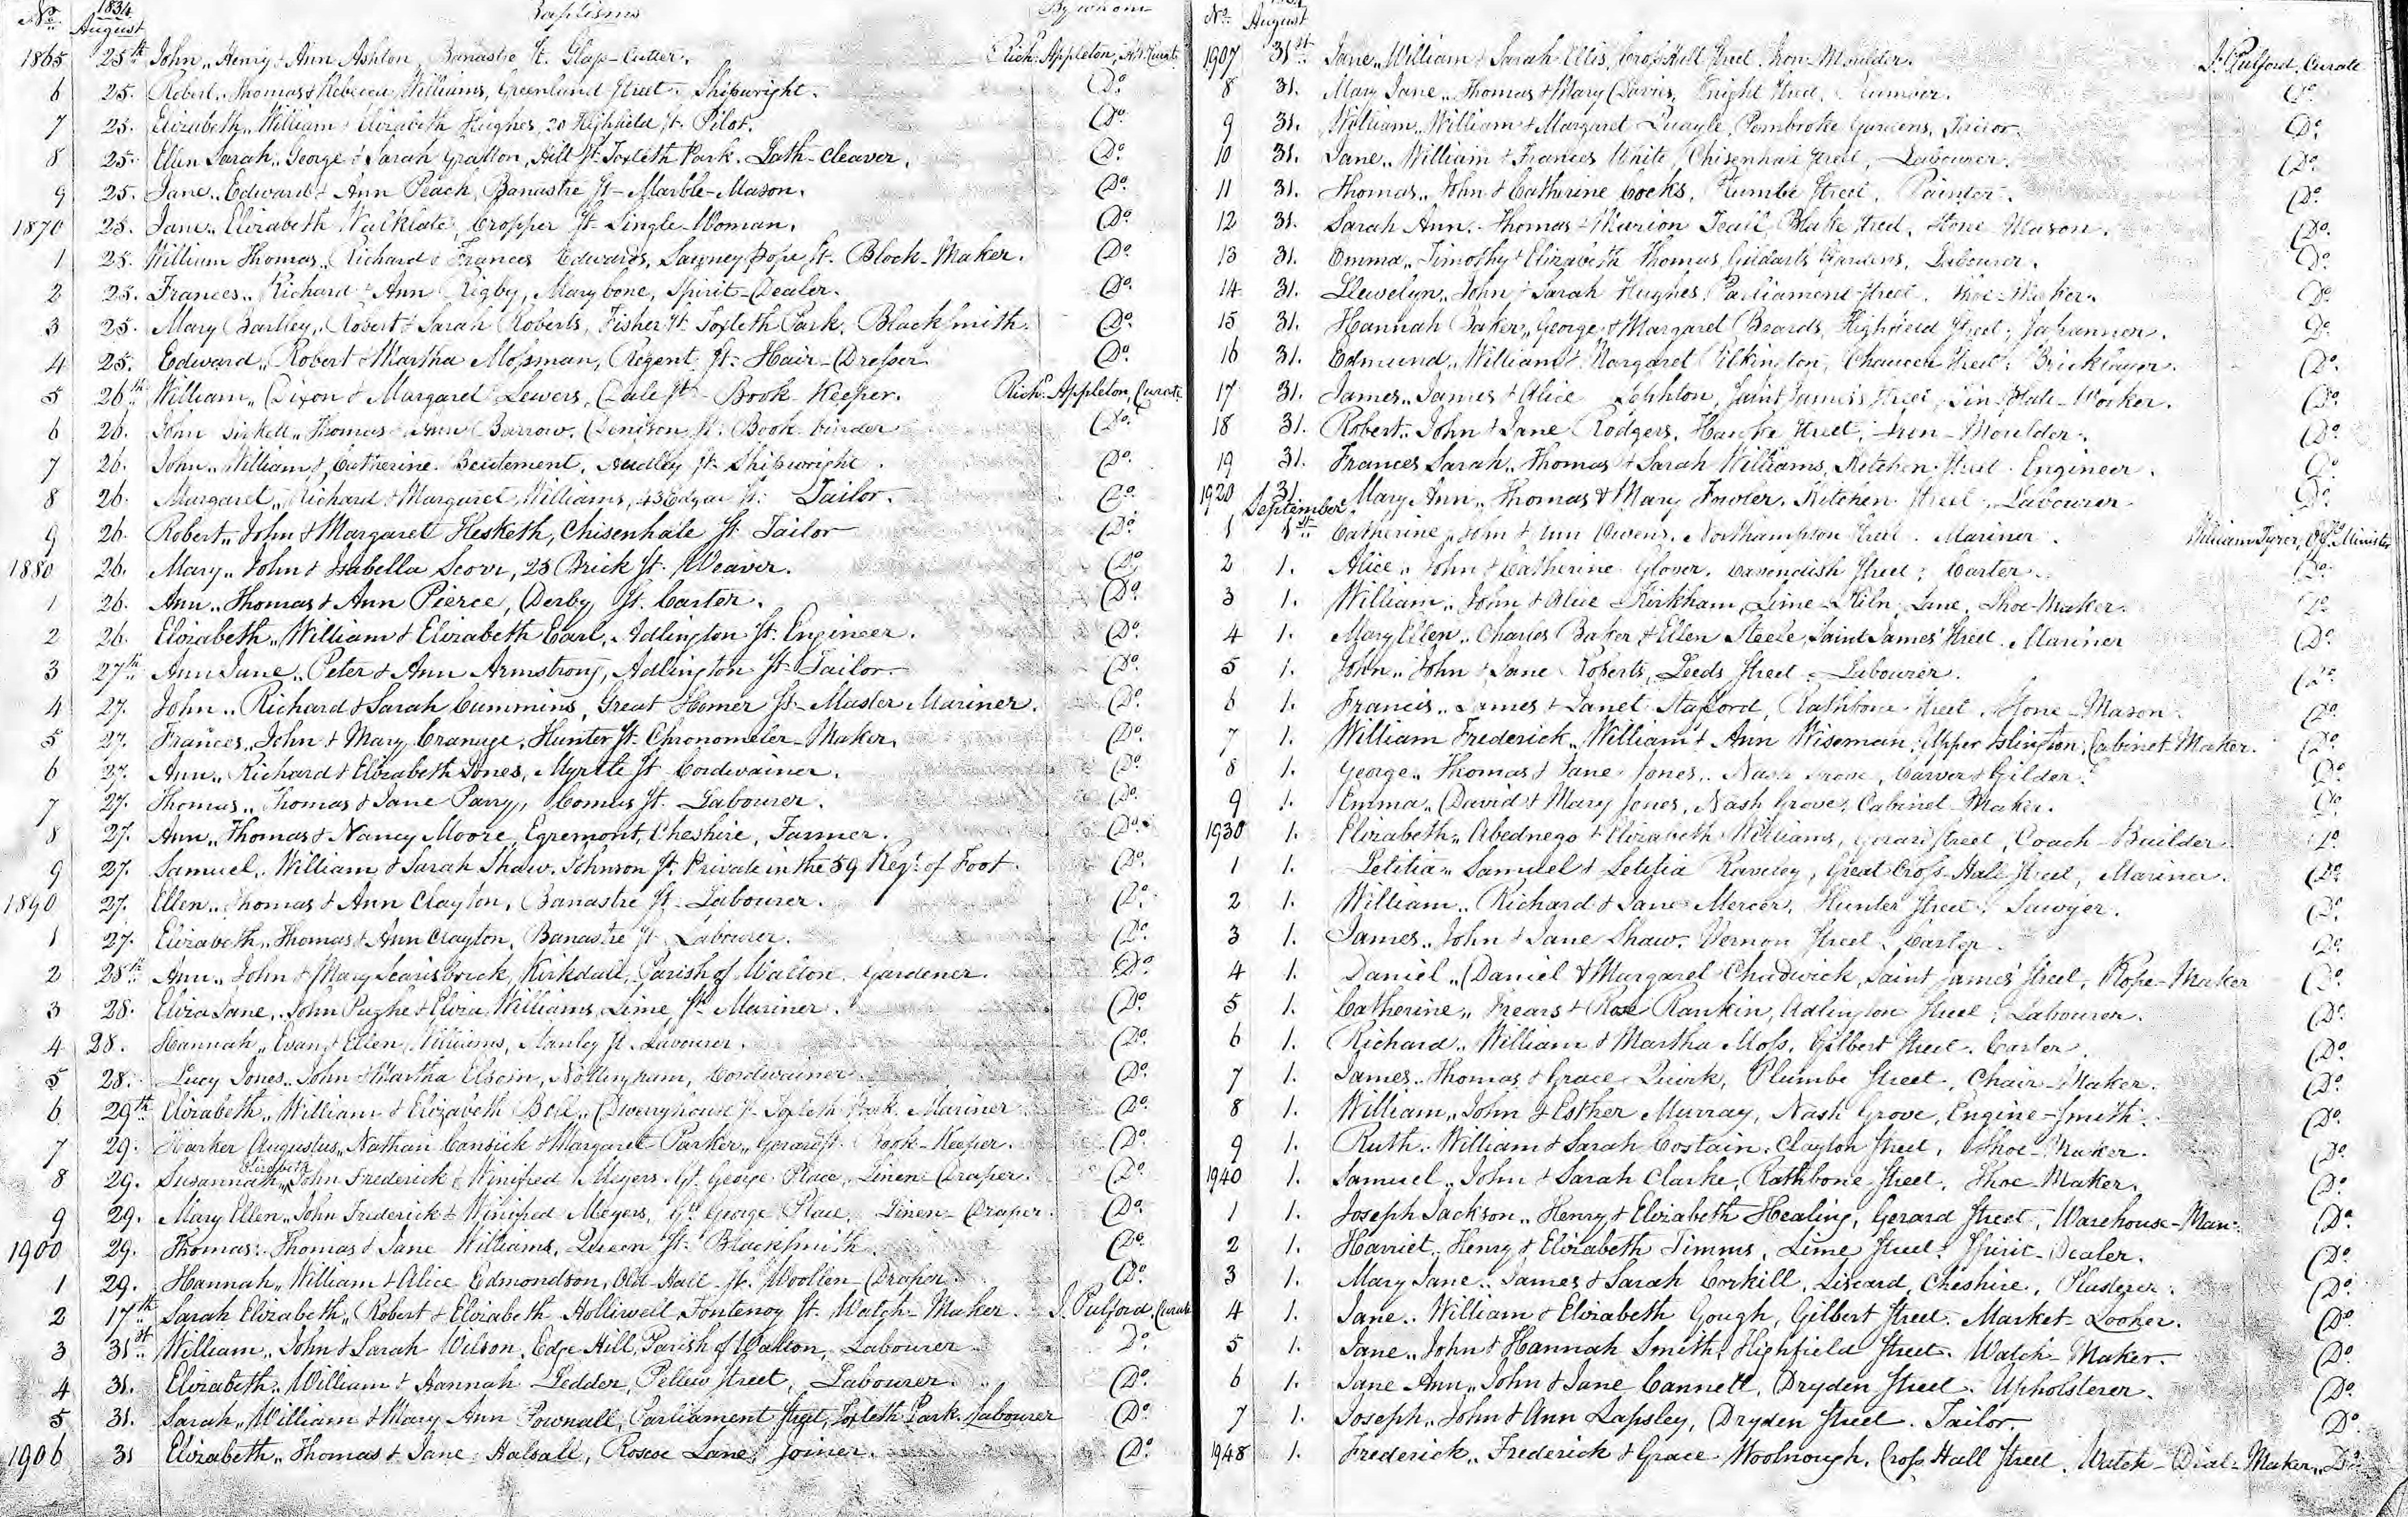 No. 1834 August Baptisms By whom
1865 25th John,, Henry & Ann Ashton, Banastre St. Glass-Cutter. Richd. Appleton, Curate
6 25. Robert,, Thomas & Rebecca Williams, Greenland Street. Shipwright. Do.
7 25. Elizabeth,, William & Elizabeth Hughes, 20 Highfield St. Pilot. Do.
8 25. Ellen Sarah,, George & Sarah Gratton, Hill St. Toxteth Park. Lath-Cleaver. Do.
9 25. Jane,, Edward & Ann Peach, Banastre St. Marble-Mason. Do.
1870 25. Jane,, Elizabeth Walklate, Cropper St. Single-Woman. Do.
1 25. William Thomas,, Richard & Frances Edwards, Sawney Pope St. Block-Maker. Do.
2 25. Frances,, Richard & Ann Rigby, Marybone, Spirit-Dealer. Do.
3 25. Mary Bartley,, Robert & Sarah Roberts, Fisher St. Toxteth Park. BlackSmith. Do.
4 25. Edward,, Robert & Martha Mossman, Regent St. Hair-Dresser Do.
5 26th William,, Dixon & Margaret Lewers, Dale St. Book-Keeper. Richd. Appleton, Curate
6 26. John,, Thomas & Ann Barrow, Denison St. Book-binder Do.
7 26. John,, William & Catherine Beutement, Audley St. Shipwright. Do.
8 26. Margaret,, Richard & Margaret Williams, Edgar St. Tailor. Do.
9 26. Robert,, John & Margaret Hesketh, Chisenhale St. Tailor Do.
1880 26. Mary,, John & Isabella Scovr, 23 Brick St. Weaver. Do.
1 26. Ann,, Thomas & Ann Pierce, Derby St. Carter. Do.
2 26. Elizabeth,, William & Elizabeth Earl, Adlington St. Engineer. Do.
3 27th Ann Jane,, Peter & Ann Armstrong, Adlington St. Tailor. Do.
4 27. John,, Richard & Sarah Cummins, Great Homer St. Master Mariner. Do.
5 27. Frances,, John & Mary Cranage, Hunter St. Chronometer-Maker. Do.
6 27. Ann,, Richard & Elizabeth Jones, Myrtle St. Cordwainer. Do.
7 27. Thomas,, Thomas & Jane Parry, Comus St. Labourer. Do.
8 27. Ann,, Thomas & Nancy Moore, Egremont, Cheshire, Farmer. Do.
9 27. Samuel,, William & Sarah Shaw, Johnson St. Private in the 59 Regt. of Foot. Do.
1890 27. Ellen,, Thomas & Ann Clayton, Banastre St. Labourer. Do.
1 27. Elizabeth,, Thomas & Ann Clayton, Banastre St. Labourer. Do.
2 28th Ann,, John & Mary Scarisbrick, Kirkdale, Parish of Walton. Gardener. Do.
3 28. Eliza Jane,, John Pughe & Eliza Williams, Lime St. Mariner. Do.
4 28. Hannah,, Evan & Ellen Williams, Stanley St. Labourer. Do.
5 28. Lucy Jones,, John & Martha Elsoin, Nottingham, Cordwainer. Do.
6 29th Elizabeth,, William & Elizabeth Bell, Dwerryhouse St. Toxteth Park. Mariner Do.
7 29. Harker Augustus,, Nathan Cansick & Margaret Parker, Gerard St. Book-Keeper. Do.
8 29. Susannah Elizabeth,, John Frederick & Winifred Meyers, Gt. George Place, Linen-Draper. Do.
9 29. Mary Ellen,, John Frederick & Winifred Meyers, Gt. George Place, Linen-Draper. Do.
1900 29. Thomas,, Thomas & Jane Williams, Queen St. BlackSmith. Do.
1 29. Hannah,, William & Alice Edmondson, Old-Hall-St. Woollen-Draper. Do.
2 17th Sarah Elizabeth,, Robert & Elizabeth Holliwell, Fontenoy St. Watch-Maker. J. Pulford, Curate
3 31st William,, John & Sarah Wilson, Edge Hill, Parish of Walton, Labourer Do.
4 31. Elizabeth,, William & Hannah Ledder, Pellew Street, Labourer. Do.
5 31. Sarah,, William & Mary Ann Pownall, Parliament Street, Toxteth Park. Labourer Do.
1906 31 Elizabeth,, Thomas & Jane Halsall, Roscoe Lane, Joiner. Do.
No. August
1907 31st Jane,, William & Sarah Ellis, Cross Hall Street. Iron-Moulder. J. Pulford, Curate
8 31. Mary Jane,, Thomas & Mary Davies, Knight Street, Plumber. Do.
9 31. William,, William & Margaret Quayle, Pembroke Gardens, Tailor. Do.
10 31. Jane,, William & Frances White, Chisenhale Street, Labourer. Do.
11 31. Thomas,, John & Catherine Cocks, Plumbe Street, Painter. Do.
12 31. Sarah Ann,, Thomas & Marion Teall, Blake Street, Stone Mason. Do.
13 31. Emma,, Timothy & Elizabeth Thomas, Gildarts Gardens, Labourer. Do.
14 31. Llewelyn,, John & Sarah Hughes, Parliament Street. Shoe-Maker. Do.
15 31. Hannah Baker,, George & Margaret Beards, Highfield Street, Japanner. Do.
16 31. Edmund,, William & Margaret Pilkington, Chaucer Street, Bricklayer. Do.
17 31. James,, James & Alice Lephton, Saint James's Street, Tin-Plate-Worker. Do.
18 31. Robert,, John & Jane Rodgers, Hawke Street, Iron-Moulder. Do.
19 31. Frances Sarah,, Thomas & Sarah Williams, Kitchen Street. Engineer. Do.
1920 31 Mary Ann,, Thomas & Mary Fowler, Kitchen Street, Labourer Do.
September
1 1st Catherine,, John & Ann Owens, Northampton Street. Mariner. William Tyrer, Offg. Minister
2 1. Alice,, John & Catherine Glover, Cavendish Street, Carter. Do.
3 1. William,, John & Alice Kirkham, Lime-Kiln Lane, Shoe-Maker. Do.
4 1. Mary Ellen,, Charles Baker & Ellen Steele, Saint James' Street. Mariner Do.
5 1. John,, John & Jane Roberts, Leeds Street. Labourer. Do.
6 1. Francis,, James & Janet Stafford, Rathbone Street. Stone-Mason. Do.
7 1. William Frederick,, William & Ann Wiseman, Upper Islington, Cabinet-Maker. Do.
8 1. George,, Thomas & Jane Jones, Nash Grove, Carver & Gilder. Do.
9 1. Emma,, David & Mary Jones, Nash Grove, Cabinet-Maker. Do.
1930 1. Elizabeth,, Abednego & Elizabeth Williams, Gerard Street, Coach-Builder Do.
1 1. Letitia,, Samuel & Letitia Raveley, Great Cross-Hall Street, Mariner. Do.
2 1. William,, Richard & Jane Mercer, Hunter Street, Sawyer. Do.
3 1. James,, John & Jane Shaw, Vernon Street, Carter. Do.
4 1. Daniel,, Daniel & Margaret Chadwick, Saint James' Street, Rope-Maker Do.
5 1. Catherine,, Frears & Rose Rankin, Adlington Street, Labourer. Do.
6 1. Richard,, William & Martha Moss, Gilbert Street. Carter. Do.
7 1. James,, Thomas & Grace Quirk, Plumbe Street, Chair-Maker. Do.
8 1. William,, John & Esther Murray, Nash Grove, Engine-Smith. Do.
9 1. Ruth,, William & Sarah Costain, Clayton Street, Shoe-Maker. Do.
1940 1. Samuel,, John & Sarah Clarke, Rathbone Street, Shoe-Maker. Do.
1 1. Joseph Jackson,, Henry & Elizabeth Healing, Gerard Street, Warehouse-Man. Do.
2 1. Harriet,, Henry & Elizabeth Timms, Lime Street, Spirit-Dealer. Do.
3 1. Mary Jane,, James & Sarah Corkill, Liscard, Cheshire, Plasterer. Do.
4 1. Jane,, William & Elizabeth Gough, Gilbert Street. Market-Looker. Do.
5 1. Jane,, John & Hannah Smith, Highfield Street. Watch-Maker. Do.
6 1. Jane Ann,, John & Jane Cannell, Dryden Street. Upholsterer. Do.
7 1. Joseph,, John & Ann Lapsley, Dryden Street. Tailor. Do.
1948 1. Frederick,, Frederick & Grace Woolnough, Cross Hall Street. Watch-Dial-Maker,, Do.